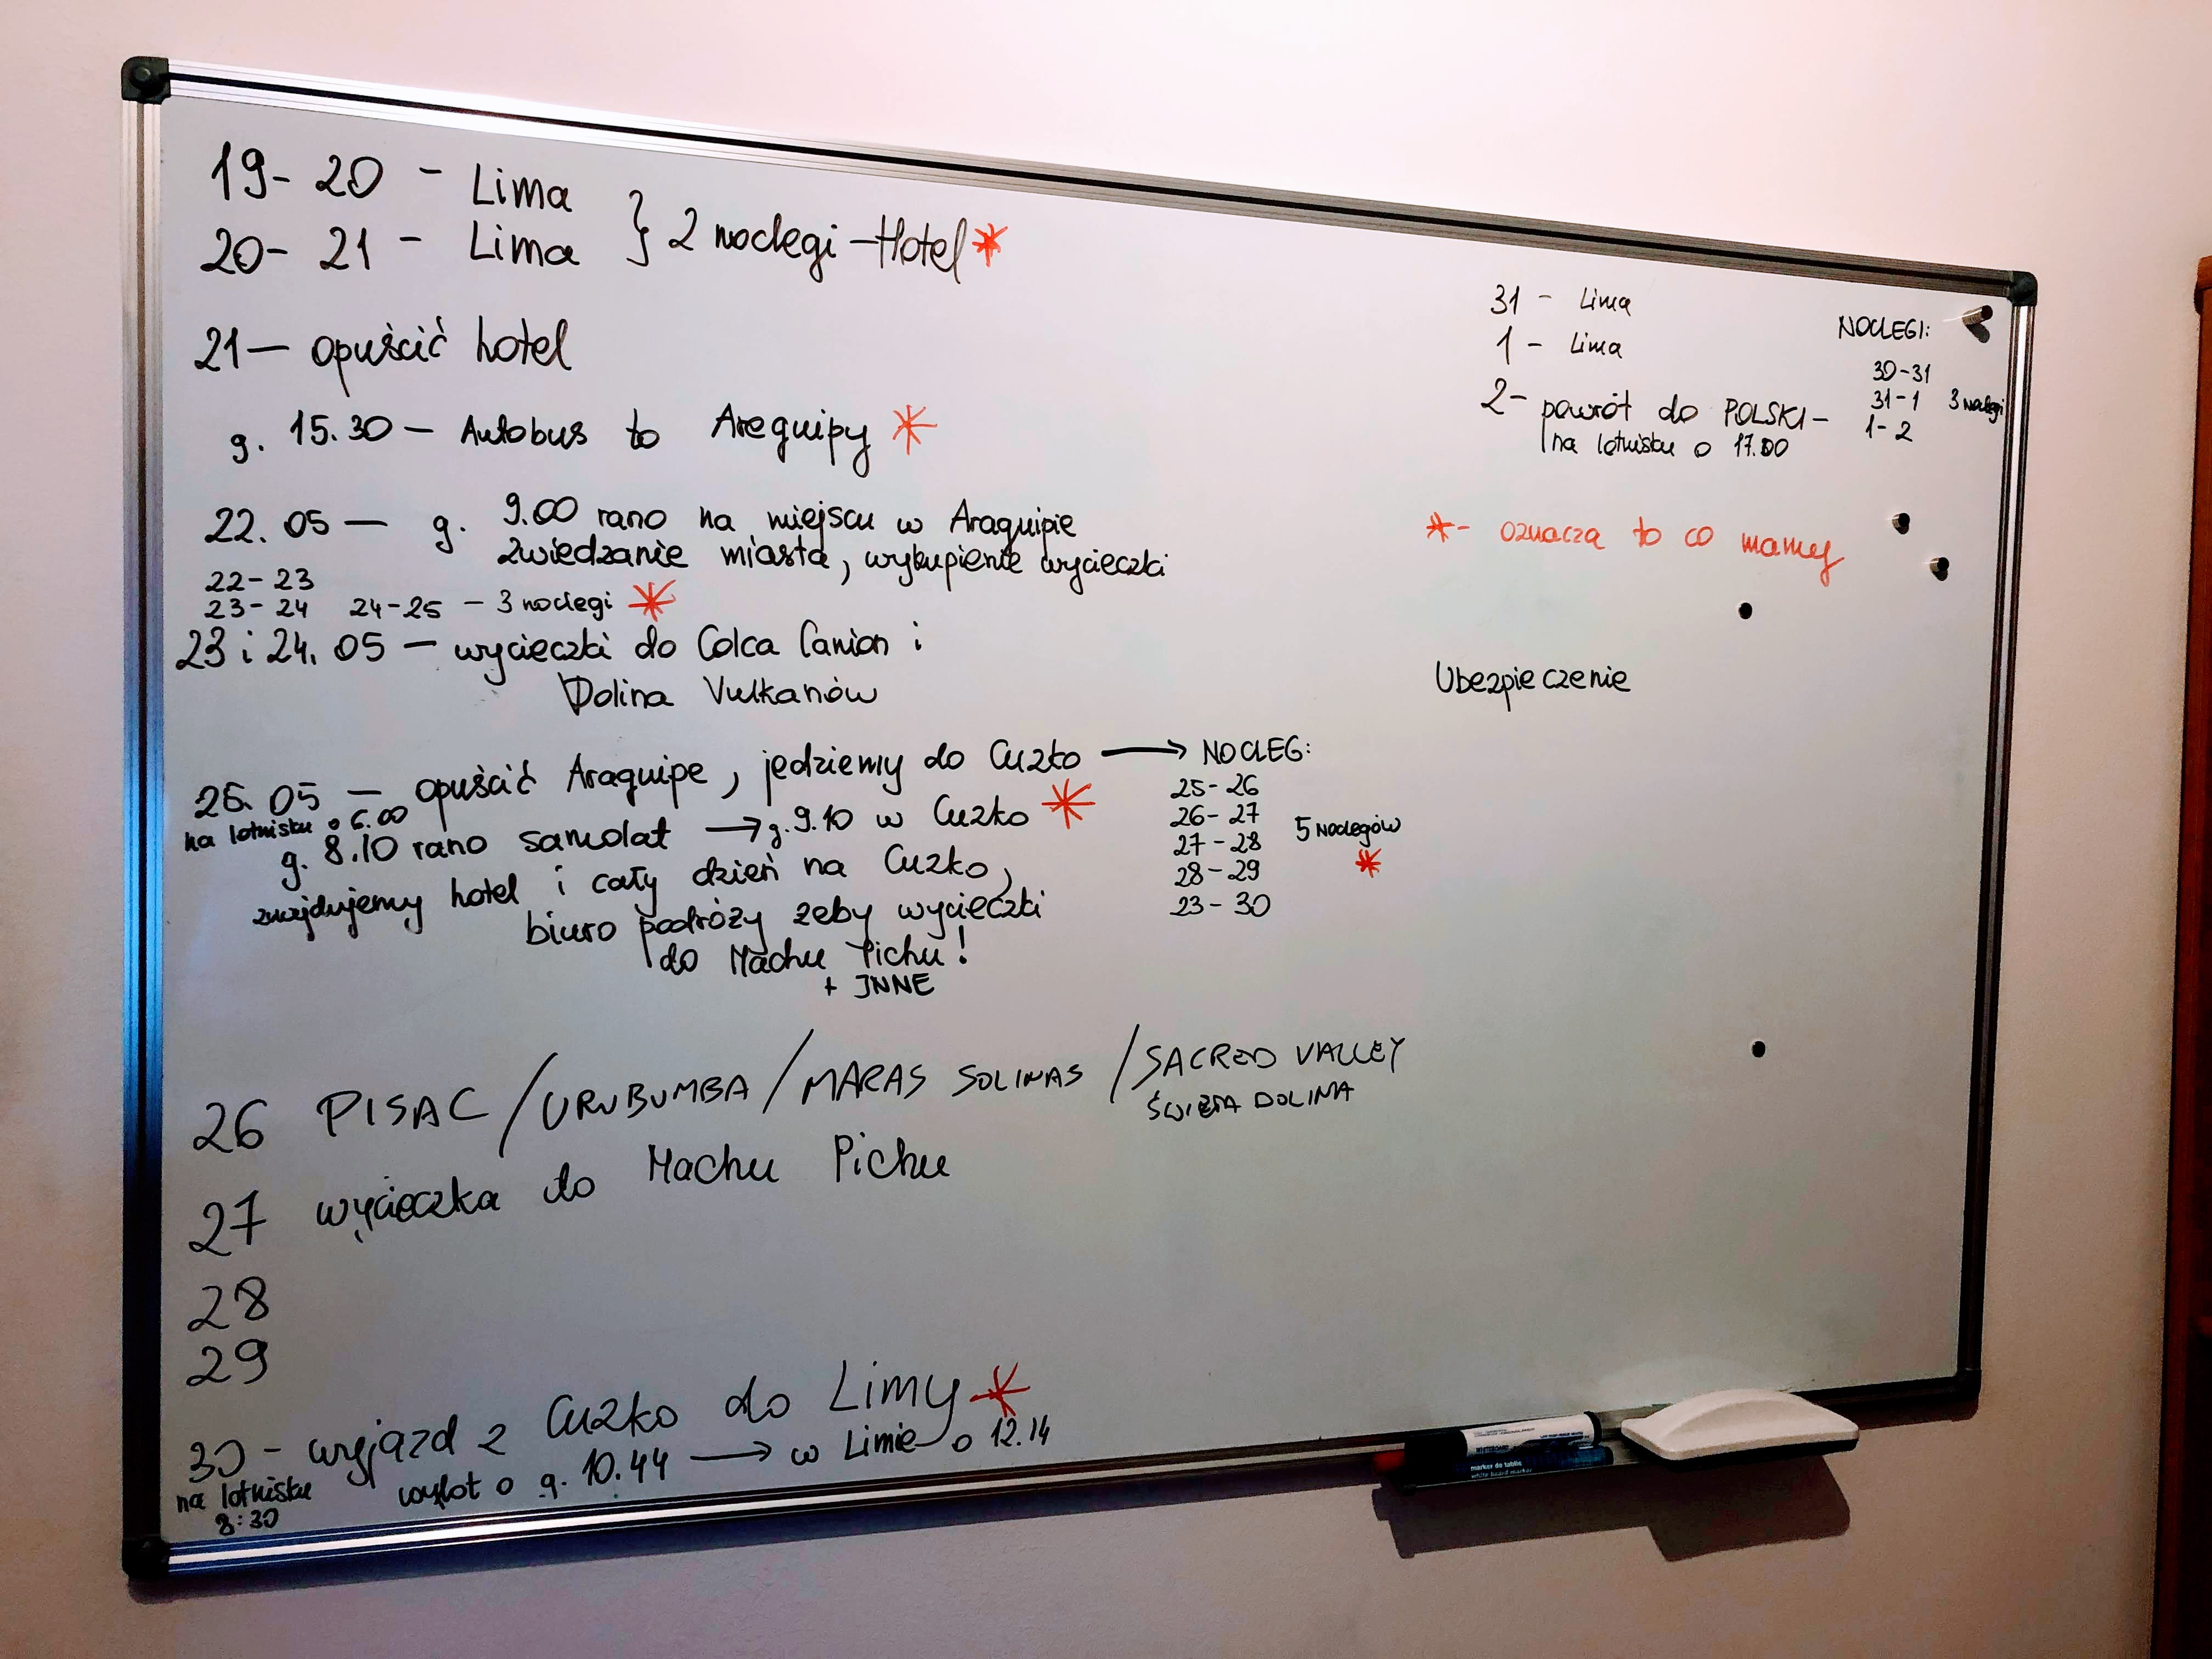 19- 20 - Lima
20- 21 - Lima } 2 noclegi - Hotel *
21 - opuścić hotel
g. 15.30 - Autobus to Arequipy *
22.05 - g. 9.00 rano na miejscu w Araquipie
zwiedzanie miasta, wykupienie wycieczki
22-23
23-24 24-25 - 3 noclegi *
23 i 24.05 - wycieczki do Colca Canion i
Dolina Vulkanów
25.05 - opuścić Araquipe, jedziemy do Cuzko → NOCLEG:
na lotnisku o 6.00
g. 8.10 rano samolot → g. 9.10 w Cuzko *
znajdujemy hotel i cały dzień na Cuzko,
biuro podróży żeby wycieczki
do Machu Pichu!
+ INNE
25-26
26-27
27-28 5 noclegów *
28-29
23-30
26 PISAC / URUBUMBA / MARAS SOLINAS / SACRED VALLEY
ŚWIĘTA DOLINA
27 wycieczka do Machu Pichu
28
29
30 - wyjazd z Cuzko do Limy *
na lotnisku
8:30
wylot o g. 10.44 → w Limie o 12.14
31 - Lima
1 - Lima
2 - powrót do POLSKI -
na lotnisku o 17.00
NOCLEGI:
30-31
31-1 3 noclegi
1-2
* - oznacza to co mamy
Ubezpieczenie
WHITEBOARD
marker do tablic
white board marker